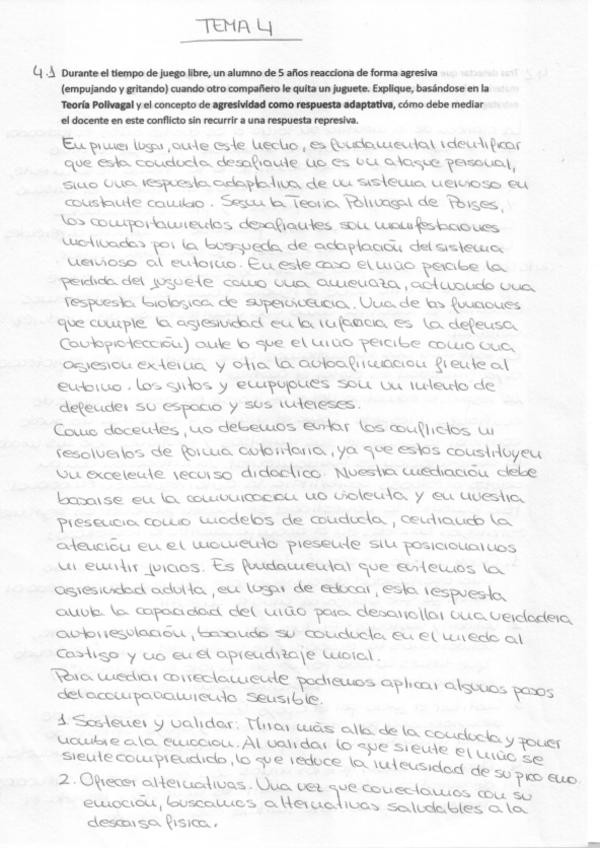 TEMA 4
4.1 Durante el tiempo de juego libre, un alumno de 5 años reacciona de forma agresiva
(empujando y gritando) cuando otro compañero le quita un juguete. Explique, basándose en la
Teoría Polivagal y el concepto de agresividad como respuesta adaptativa, cómo debe mediar
el docente en este conflicto sin recurrir a una respuesta represiva.
En primer lugar, ante este hecho, es fundamental identificar
que esta conducta desafiante no es un ataque personal,
sino una respuesta adaptativa de un sistema nervioso en
constante cambio. Según la Teoría Polivagal de Porges,
los comportamientos desafiantes son manifestaciones
motivadas por la búsqueda de adaptación del sistema
nervioso al entorno. En este caso el niño percibe la
perdida del juguete como una amenaza, actuando una
respuesta biologica de supervivencia. Una de las funciones
que cumple la agresividad en la infancia es la defensa
(autoprotección) ante lo que el niño percibe como una
agresion externa y otra la autoafirmacion frente al
entorno. Los gritos y empujones son un intento de
defender su espacio y sus intereses.
Como docentes, no debemos evitar los conflictos ni
resolverlos de forma autoritaria, ya que estos constituyen
un excelente recurso didactico. Nuestra mediación debe
basarse en la comunicacion no violenta y en nuestra
presencia como modelos de conducta, centrando la
atención en el momento presente sin posicionarnos
ni emitir juicios. Es fundamental que evitemos la
agresividad adulta, en lugar de educar, esta respuesta
anula la capacidad del niño para desarrollar una verdadera
autorregulación, basando su conducta en el miedo al
castigo y no en el aprendizaje moral.
Para mediar correctamente podriemos aplicar algunos pasos
del acompañamiento sensible.
1. Sostener y validar: Mirar más alla de la conducta y poner
nombre a la emocion. Al validar lo que siente el niño se
siente comprendido, lo que reduce la intensidad de su pico emo.
2. Ofrecer alternativas. Una vez que conectamos con su
emoción, buscamos alternativas saludables a la
descarga fisica.